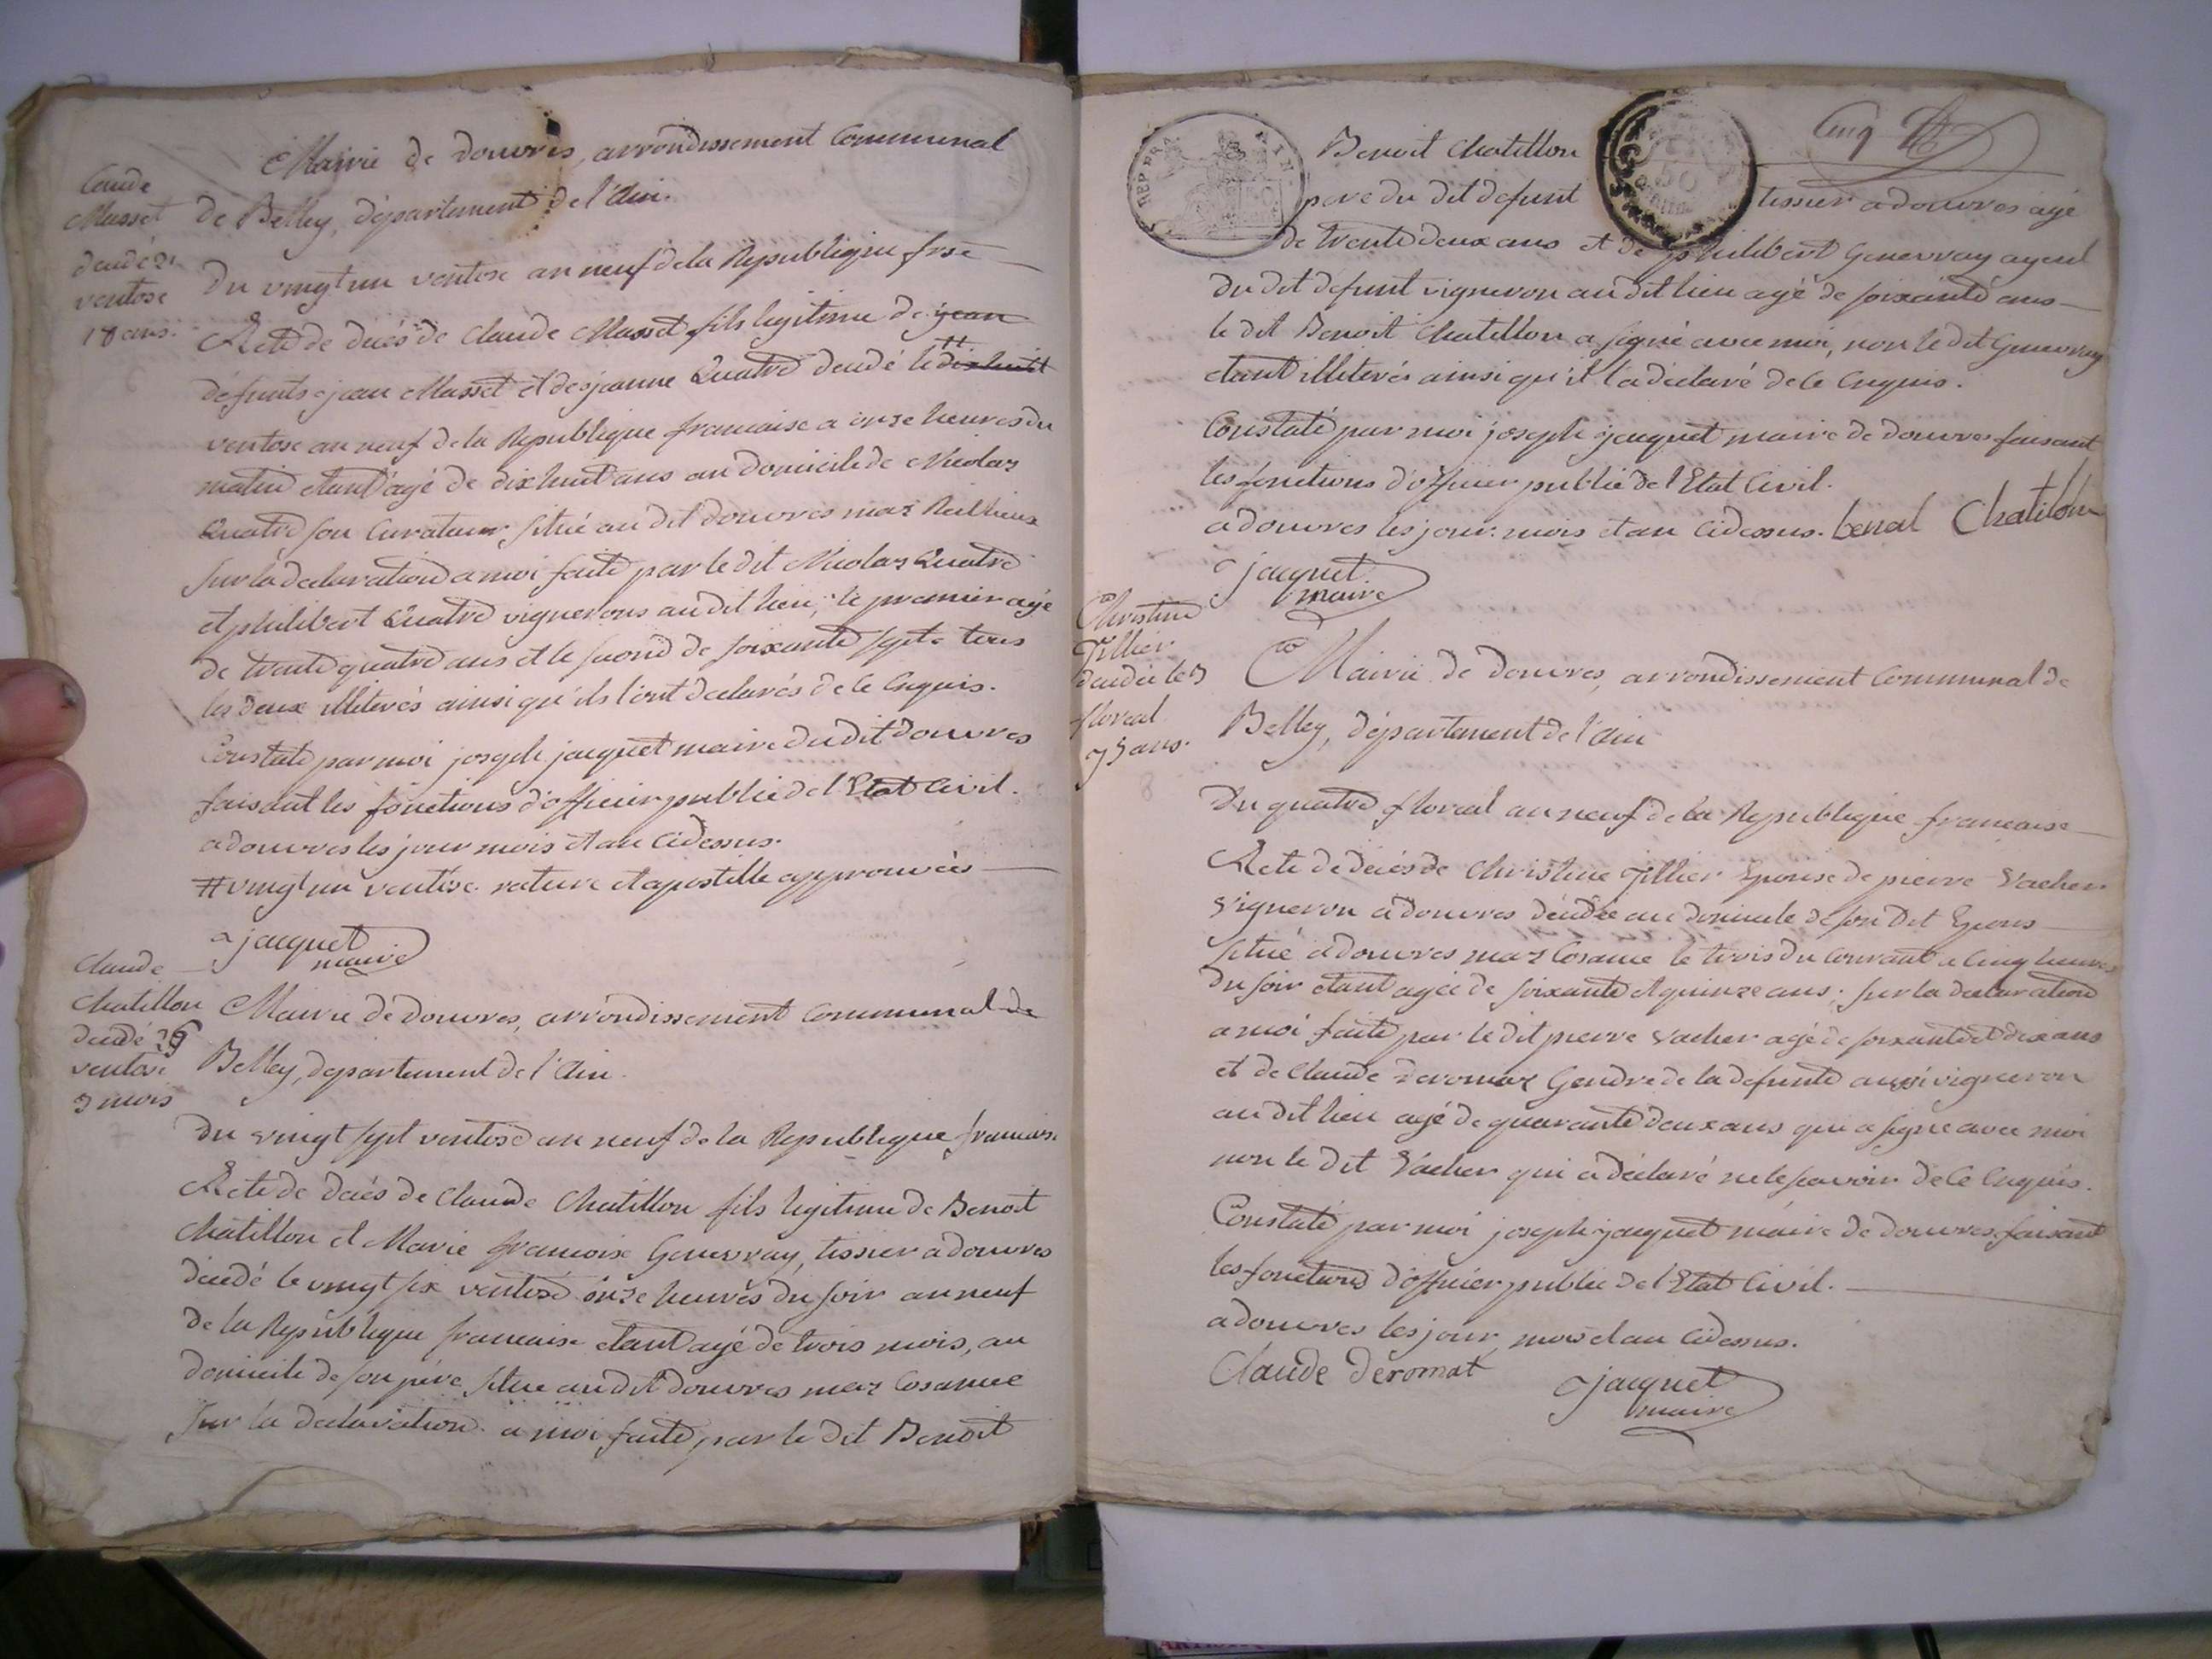 Claude
Musset
décédé 21
ventose
18 ans.
Mairie de douvres, arrondissement Communal
de Belley, département de l'Ain.
Du vingt un ventose an neuf de la Republique frse
Acte de décés de Claude Musset fils legitime de jean
défunts jean Musset et de jeanne Quatre decédé le # dixhuit
ventose an neuf de la Republique francaise a onze heures du
matin etant agé de dix huit ans au domicile de Nicolas
Quatre son Curateur, situé au dit douvres maz Reillieux
sur la declaration a moi faite par le dit Nicolas Quatre
et philibert Quatre vignerons au dit lieu, le premier agé
de trente quatre ans et le second de soixante sept tous
les deux illiterés ainsi qu'ils l'ont declarés de ce Enquis.
Constaté par moi joseph jacquet maire du dit Douvres
faisant les fonctions d'officier public de l'Etat Civil.
a douvres les jour mois et an Cidessus.
# vingt un ventose. rature et apostille approuvées
jacquet
maire
Claude
Chatillon
decédé 26
ventose
3 mois
Mairie de Douvres, arrondissement Communal de
Belley, departement de l'Ain.
Du vingt sept ventose an neuf de la Republique francaise
Acte de decés de Claude Chatillon fils legitime de Benoit
Chatillon et Marie francoise Genevray, tissier a douvres
decedé le vingt six ventose onze heures du soir an neuf
de la Republique francaise etant agé de trois mois, au
domicile de son pére situé au dit douvres maz Cosance
Sur la declaration a moi faite par le dit Benoit
Cinq
Benoit Chatillon
pere du dit defunt tissier a douvres agé
de trente deux ans et de philibert Genevray ayeul
du dit defunt vigneron au dit lieu agé de soixante ans
le dit Benoit Chatillon a signé avec moi, non le dit Genevray
etant illiterés ainsi qu'il l'a declaré de ce Enquis.
Constaté par moi joseph jacquet maire de douvres faisant
les fonctions d'officier public de l'Etat Civil.
a douvres les jour mois et an Cidessus. benoi Chatilon
jacquet
maire
Christine
Tillier
decédée le 3
floreal
75 ans.
Mairie de Douvres, arrondissement Communal de
Belley, département de l'Ain
Du quatre floreal an neuf de la Republique francaise
Acte de decés de Christine Tillier Epouse de pierre Vacher
vigneron a douvres décédée au domicile de son dit Epous
situé a douvres maz Cosance le trois du Courant a Cinq heures
du soir etant agée de soixante et quinze ans. sur la declaration
a moi faite par le dit pierre Vacher agé de soixante et dix ans
et de Claude Deromaz Gendre de la defunte aussi vigneron
au dit lieu agé de quarante deux ans qui a signé avec moi
non le dit Vacher qui a déclaré ne le scavoir de ce Enquis.
Constaté par moi joseph jacquet maire de douvres faisant
les fonctions d'officier public de l'Etat Civil.
a douvres les jour, mois et an Cidessus.
Claude Deromat
jacquet
maire